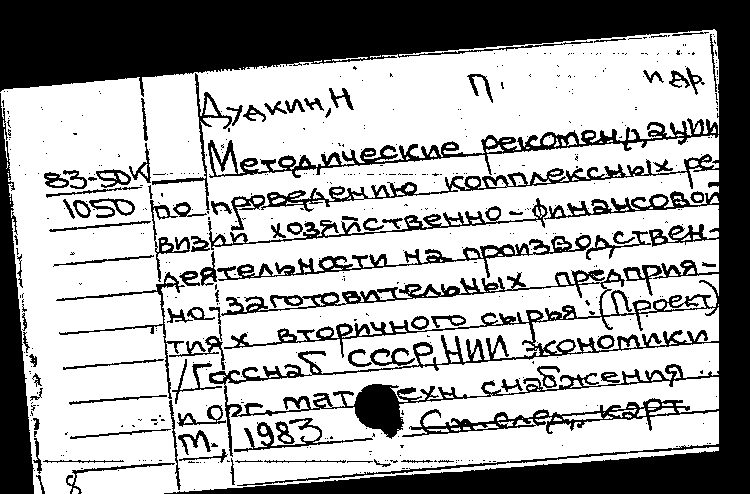 Дудкин, Н П. и др.
Методические рекомендации
83-50К
1050
по проведению комплексных ре-
визий хозяйственно-финансовой
деятельности на производствен-
но-заготовительных предприя-
тиях вторичного сырья: (Проект)
/Госснаб СССР, НИИ экономики
и орг. мат техн. снабжения ...
М., 1983. См. след. карт.
8